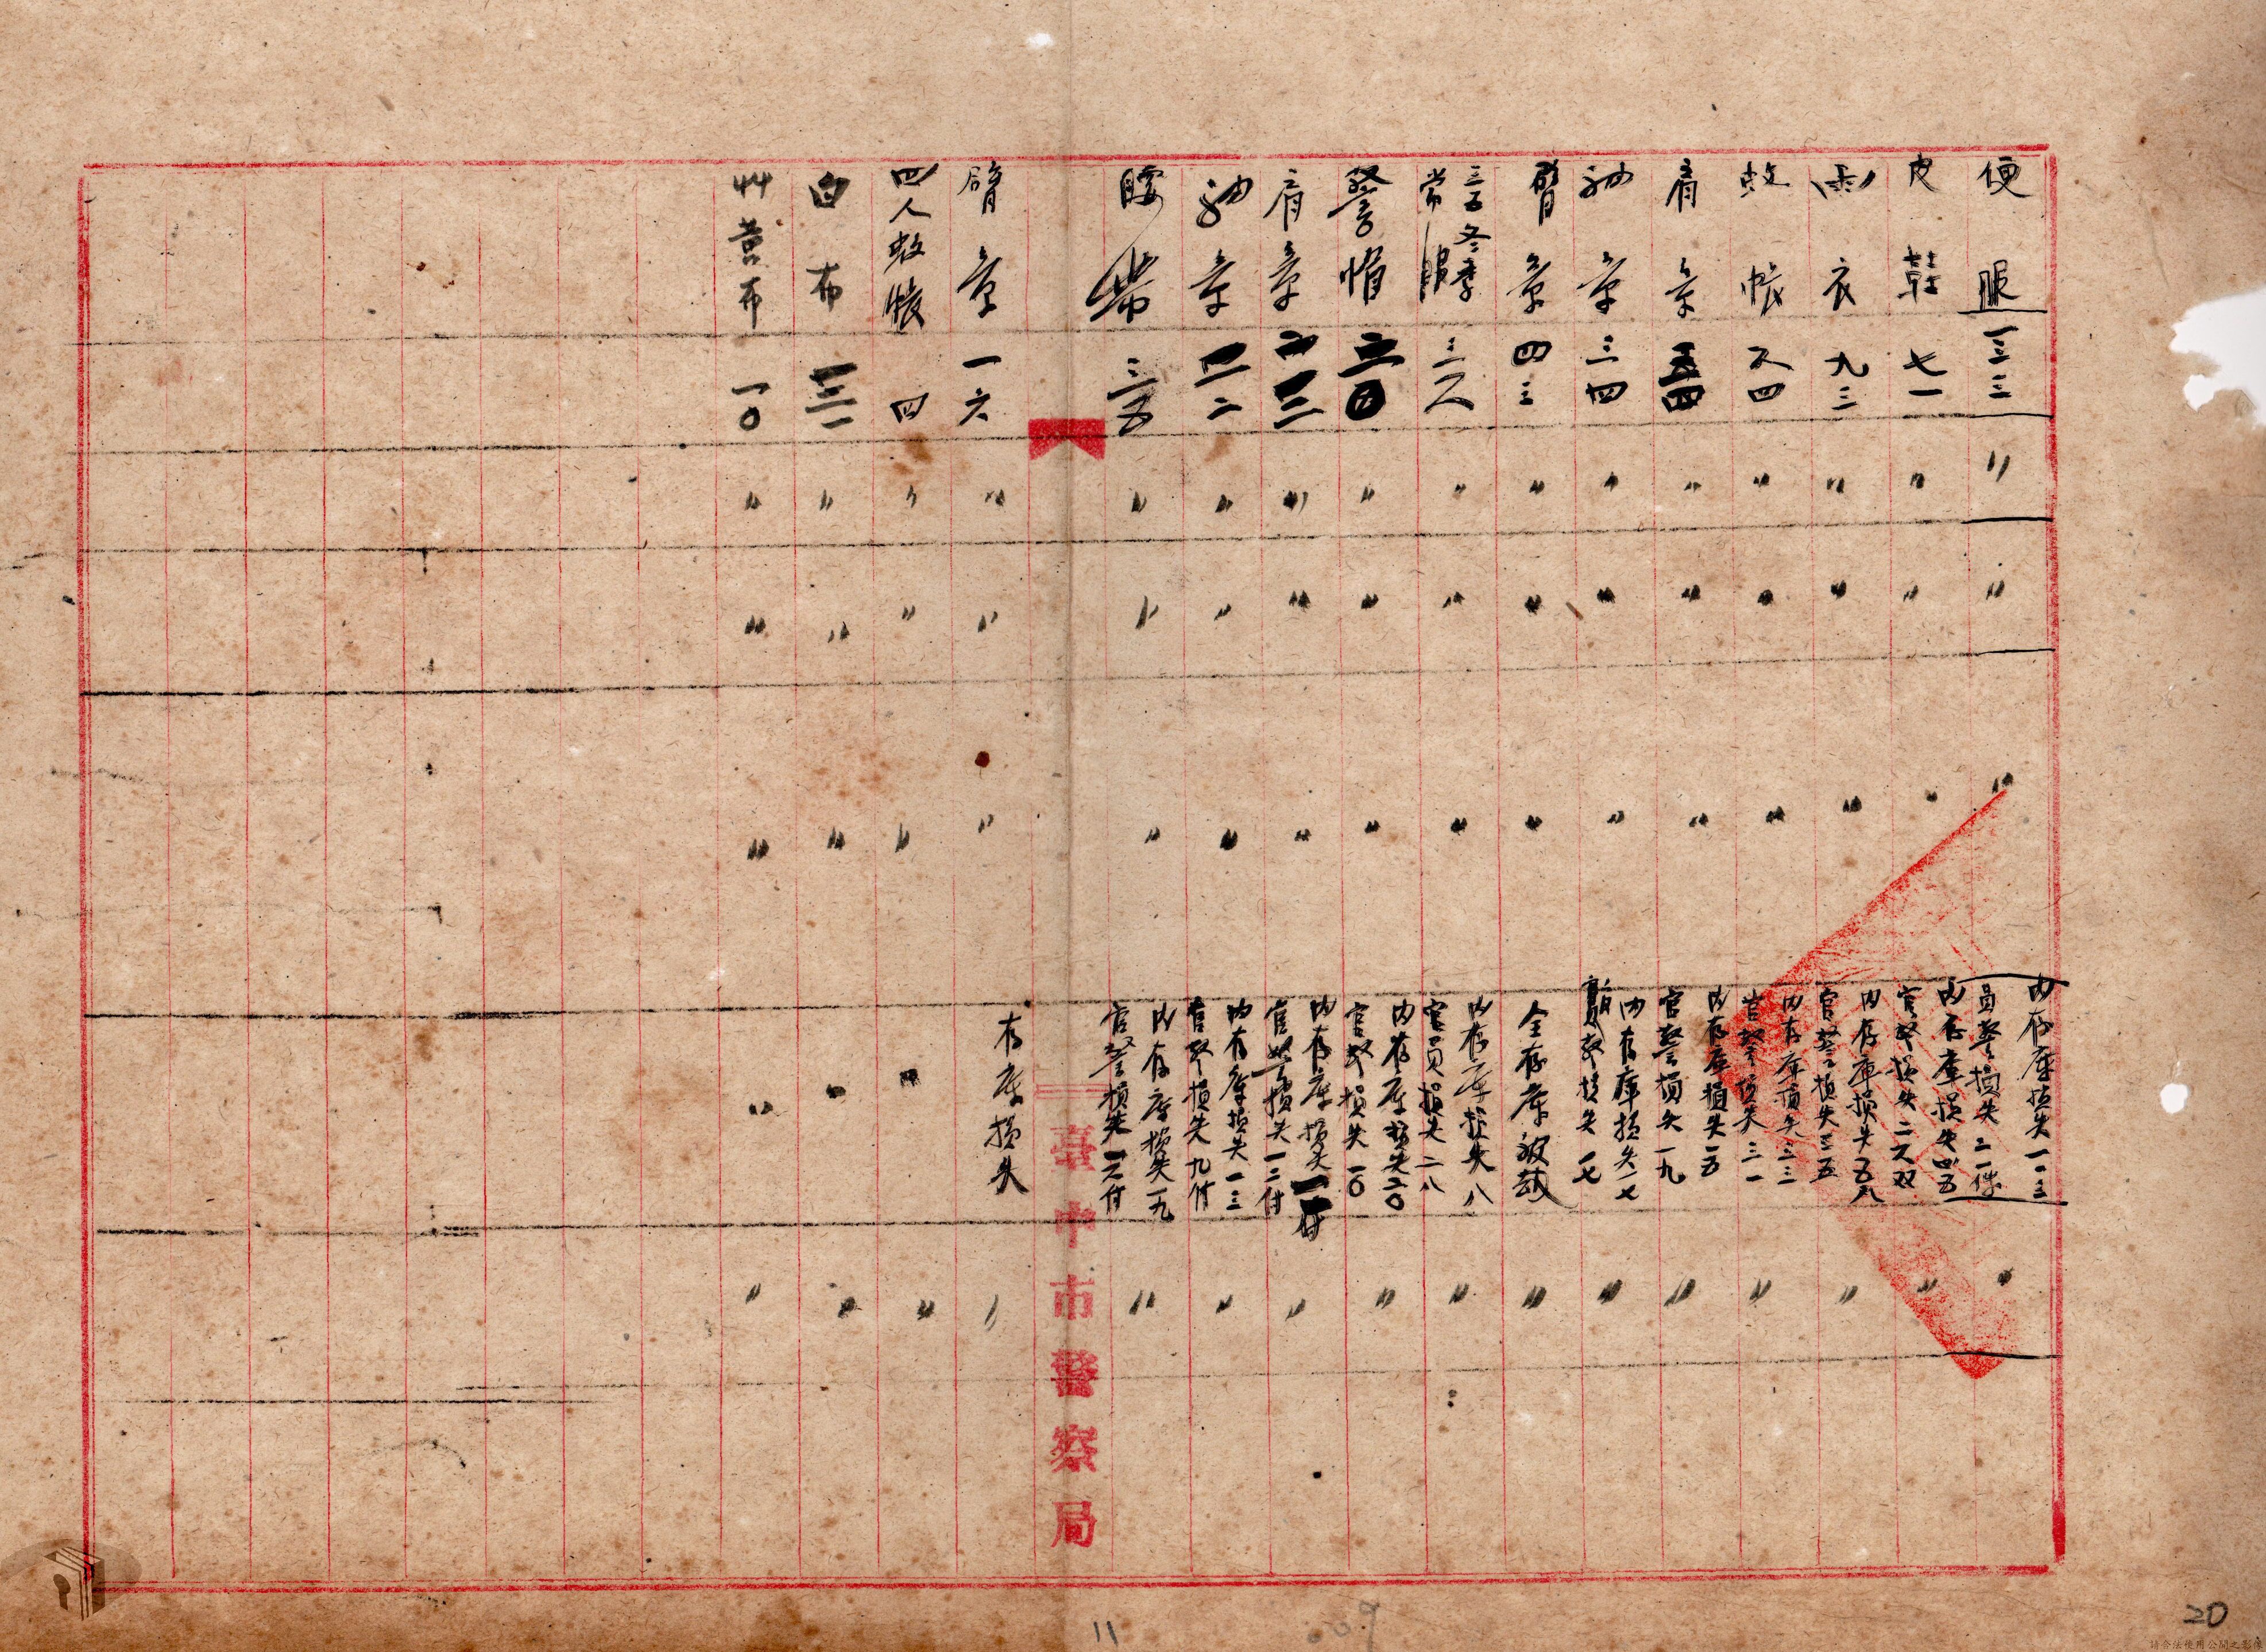 便服 一三三 〃 〃 〃 內存庫損失一一二
員警損失二一件 〃
皮鞋 七一 〃 〃 〃 內存庫損失四五
官警損失二六双 〃
雨衣 九三 〃 〃 〃 內存庫損失五八
官警損失三五 〃
蚊帳 六四 〃 〃 〃 內存庫損失三三
官警損失三一 〃
肩章 三四 〃 〃 〃 內存庫損失一五
官警損失一九 〃
袖章 三四 〃 〃 〃 內存庫損失一七
警損失一七 〃
臂章 四三 〃 〃 〃 全存庫被劫 〃
三五冬季
常服 三六 〃 〃 〃 內存庫損失八
官員損失二八 〃
警帽 三〇 〃 〃 〃 內存庫損失二〇
官警損失一〇 〃
肩章 二三 〃 〃 〃 內存庫損失一一付
官警損失一二付 〃
袖章 二二 〃 〃 〃 內存庫損失一三
官警損失九付 〃
腰帶 三五 〃 〃 〃 內存庫損失一九
官警損失一六付 〃
臺中市警察局
臂章 一六 〃 〃 〃 存庫損失 〃
四人蚊帳 四 〃 〃 〃 〃 〃
白布 〃 〃 〃 〃 〃
營布 一〇 〃 〃 〃 〃 〃
11
20